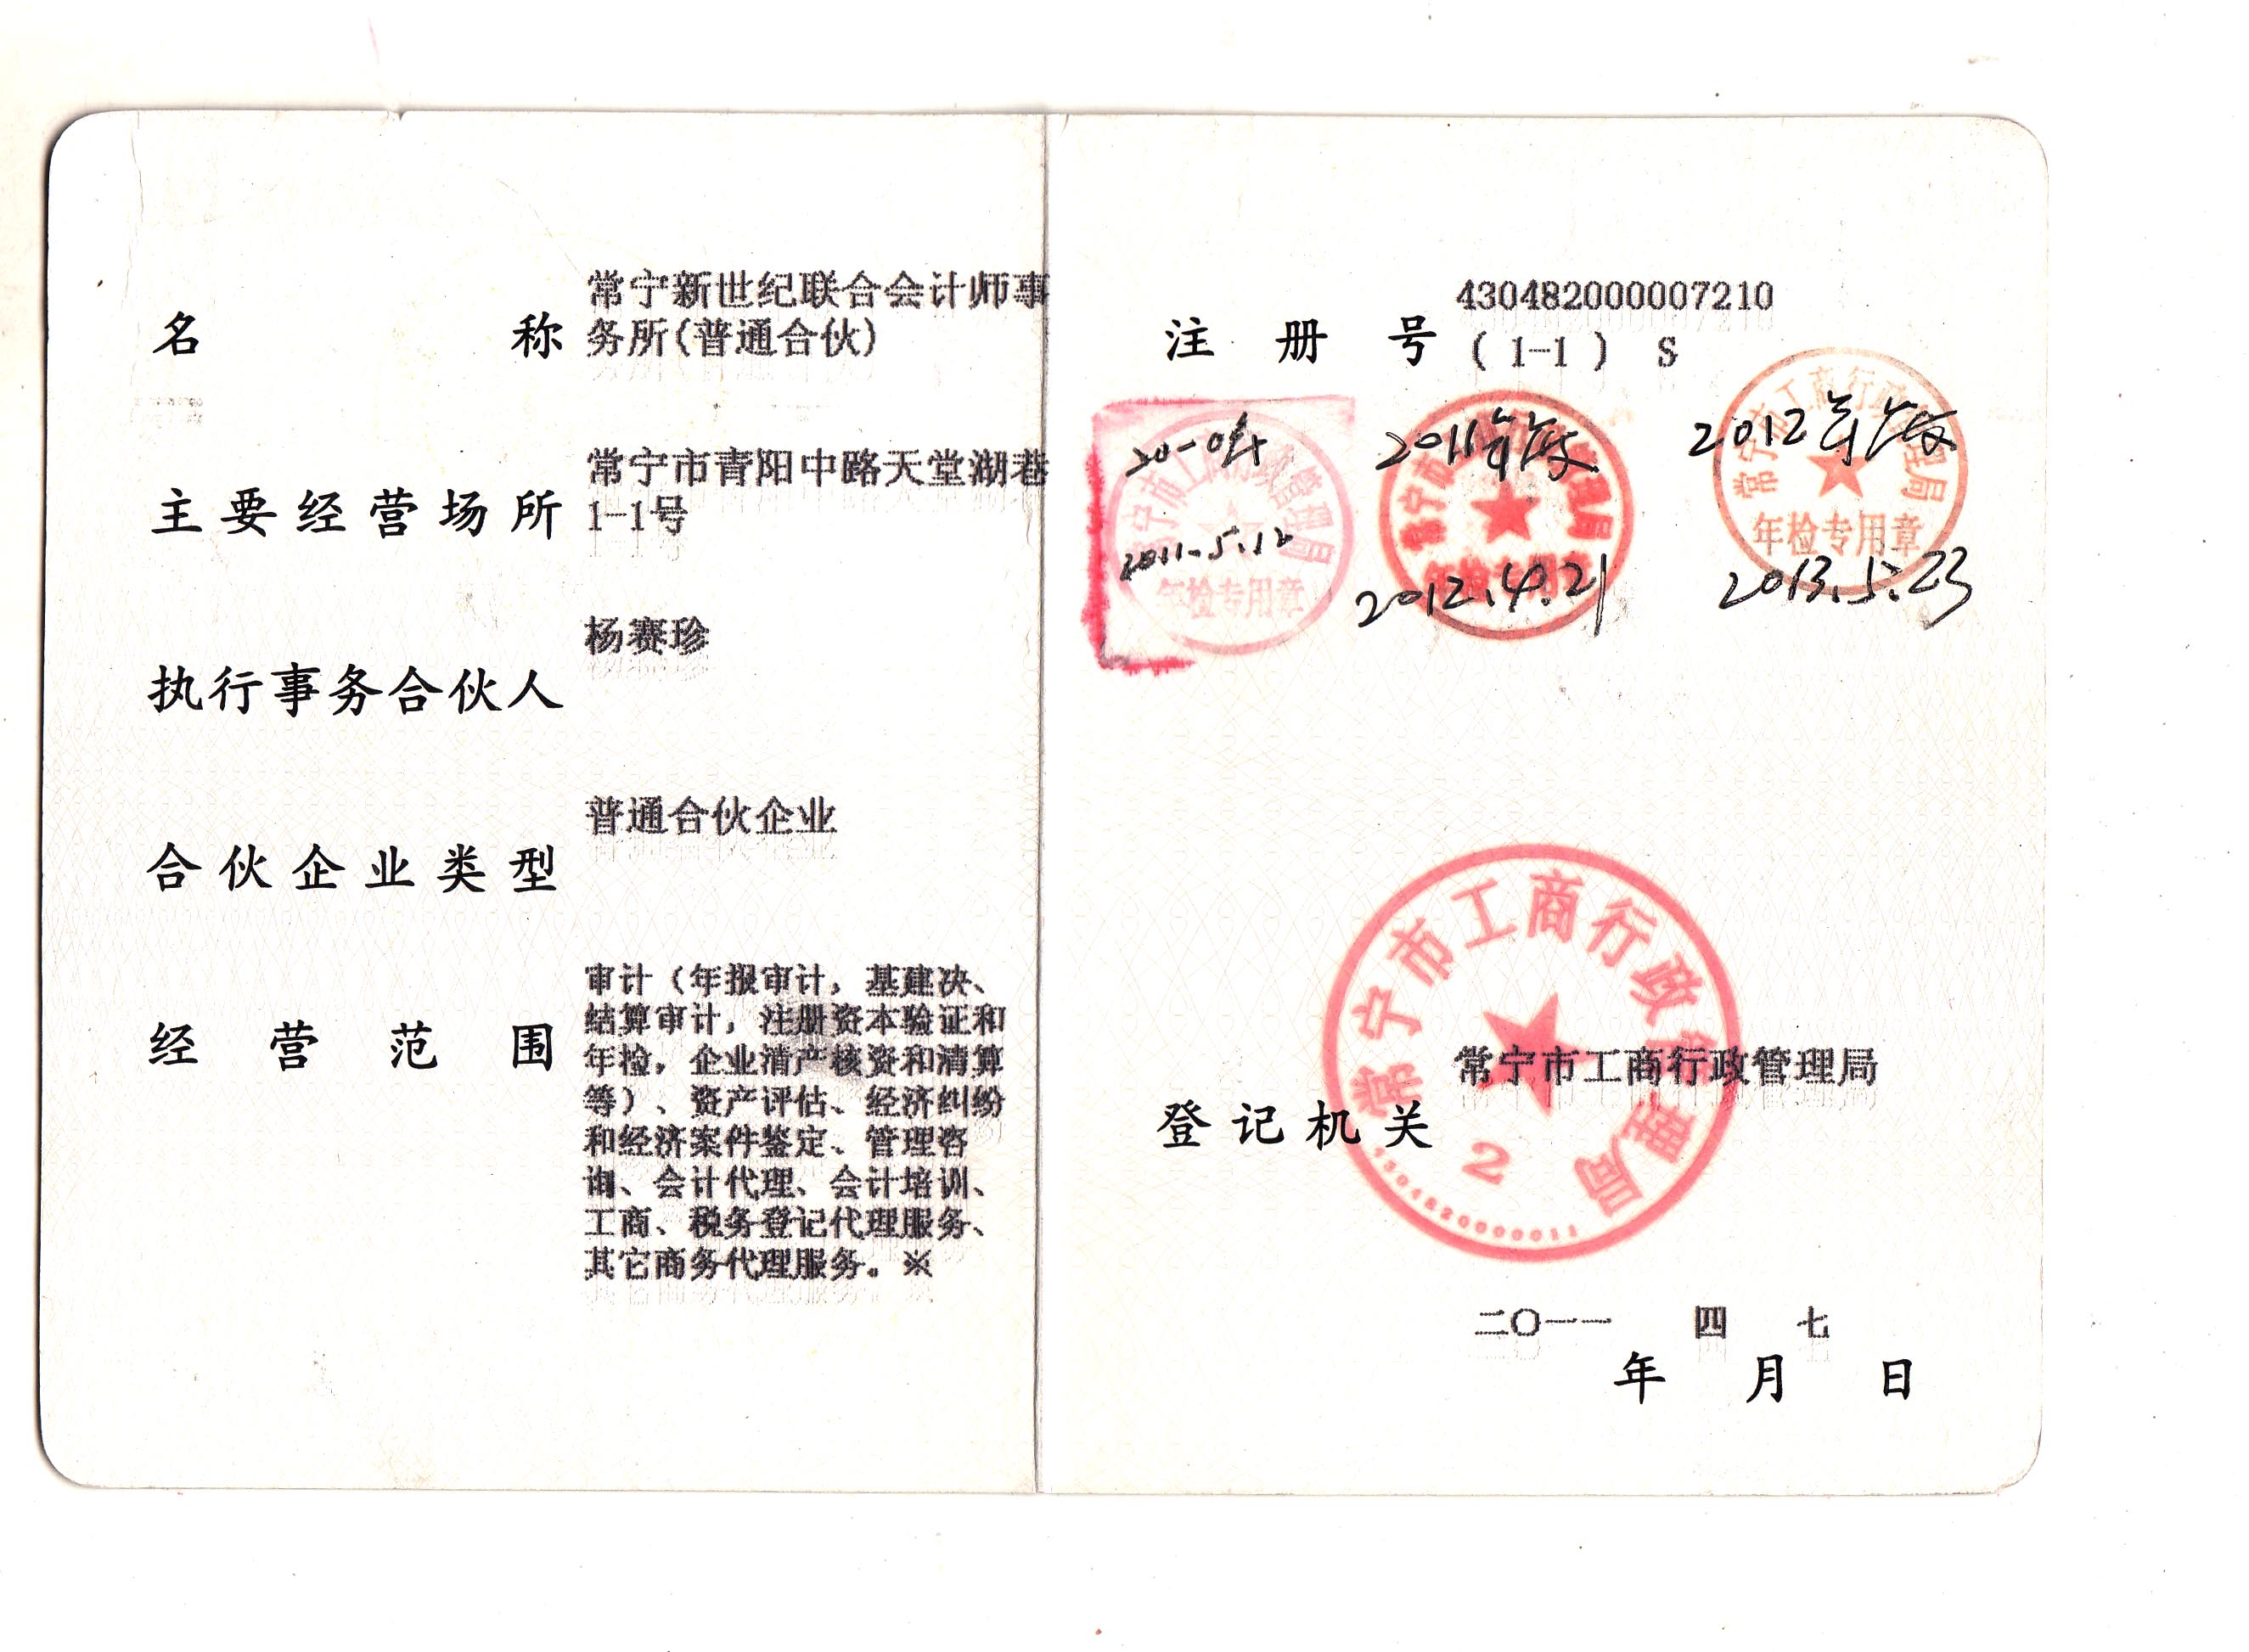 名称
常宁新世纪联合会计师事
务所(普通合伙)
主要经营场所
常宁市青阳中路天堂湖巷
1-1号
执行事务合伙人
杨赛珍
合伙企业类型
普通合伙企业
经营范围
审计（年报审计，基建决、
结算审计，注册资本验证和
年检，企业清产核资和清算
等）、资产评估、经济纠纷
和经济案件鉴定、管理咨
询、会计代理、会计培训、
工商、税务登记代理服务、
其它商务代理服务。※
注册号
430482000007210
（1-1） S
常宁市工商行政管理局
年检专用章
2011.5.12
2011年度
常宁市工商行政管理局
年检专用章
2012.4.21
2012年度
常宁市工商行政管理局
年检专用章
2013.5.23
常宁市工商行政管理局
2
4304820000011
登记机关
常宁市工商行政管理局
二〇一一 四 七
年 月 日